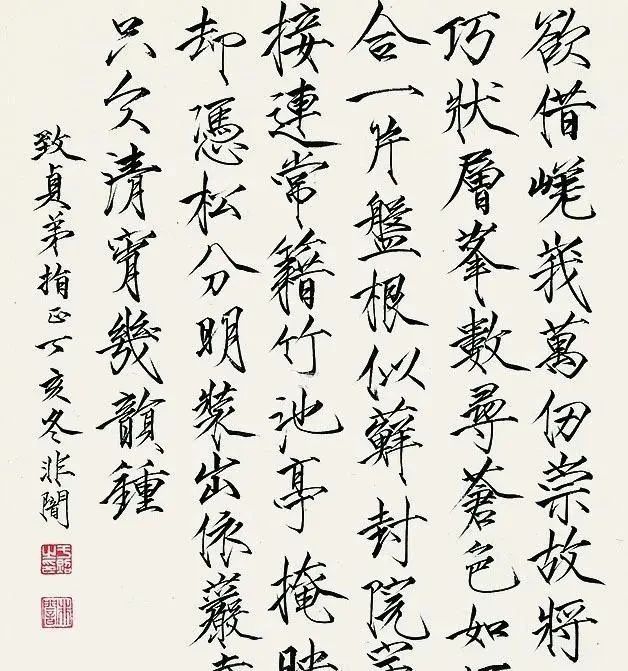 欲借嵯峨萬仞崇故將
巧狀層峯數尋蒼色如
合一片盤根似蘚封院
接連常籍竹池亭掩映
却憑松分明裝出依巖
只欠清宵幾韻鍾
致貞弟指正丁亥冬非闇
非闇